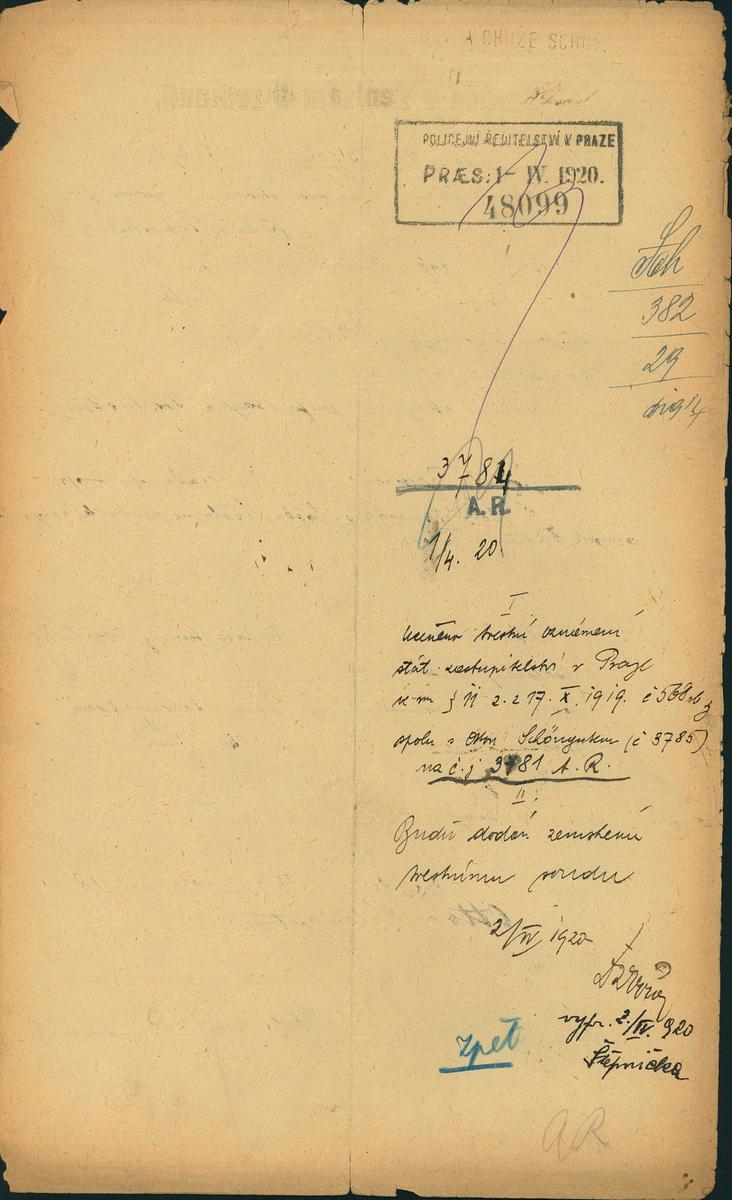 POLICEJNÍ ŘEDITELSTVÍ V PRAZE
PRÆS: 1- IV. 1920.
48099
382
29
3784
A. R.
1/4. 20
I
Učiněno trestní oznámení
stát. zastupitelství v Praze
§ 11 z. z 17. X. 1919. č 568 sb z
spolu s Otton Schöngutem (č 3785)
na č. j 3781 A. R.
II.
Budiž dodán zemskému
trestnímu soudu
2/IV 1920
vypr. 2./IV. 1920
Štěpnička
zpět
AR